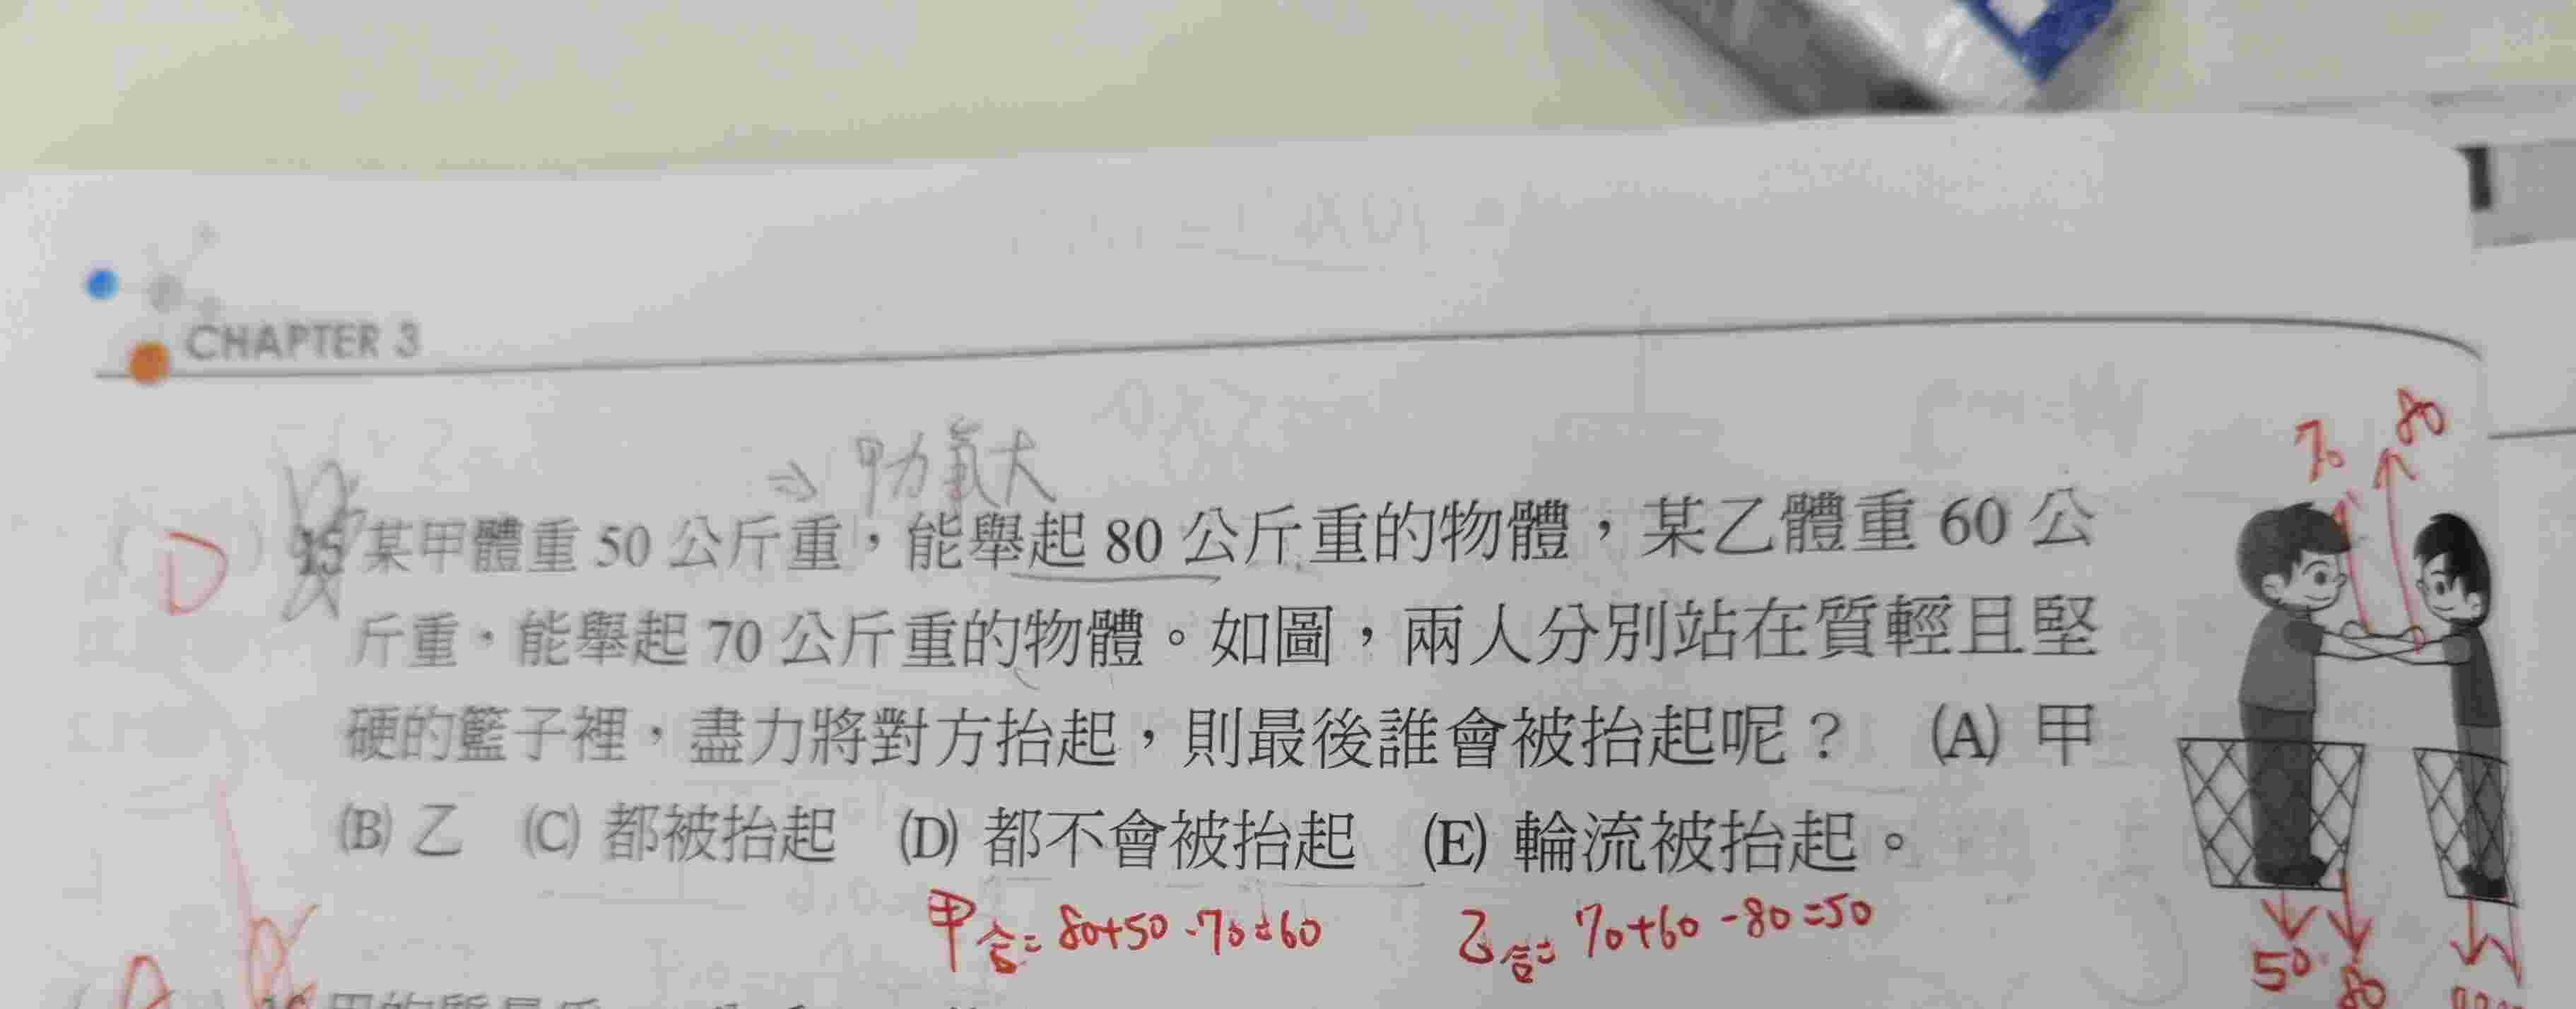 CHAPTER 3
⇒ 甲力氣大
70 80
(D) 15 某甲體重 50 公斤重，能舉起 80 公斤重的物體，某乙體重 60 公
斤重，能舉起 70 公斤重的物體。如圖，兩人分別站在質輕且堅
硬的籃子裡，盡力將對方抬起，則最後誰會被抬起呢？ (A) 甲
(B) 乙 (C) 都被抬起 (D) 都不會被抬起 (E) 輪流被抬起。
甲合= 80+50-70=60 乙合= 70+60-80=50
50 80